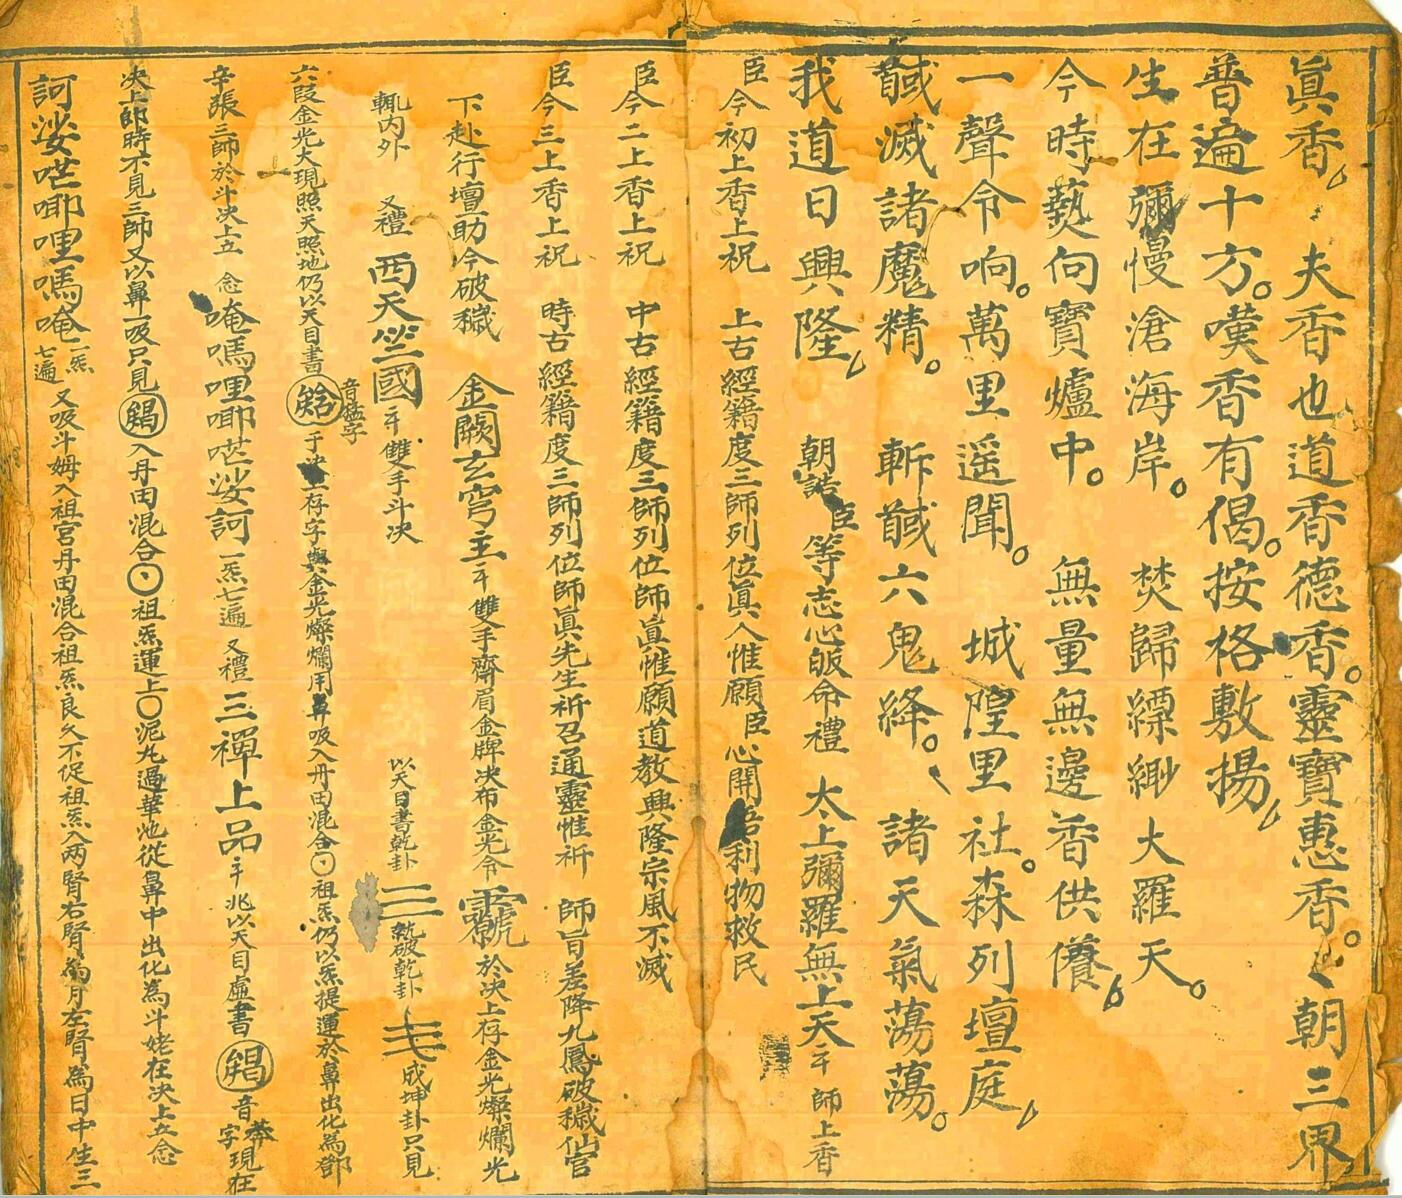 眞香 夫香也道香德香。靈寶惠香。朝三界
普遍十方。嘆香有偈。按格敷揚
生在彌慢滄海岸。 焚歸縹緲大羅天。
今時爇向寶爐中。 無量無邊香供養
一聲令响。萬里遥聞。 城隍里社。森列壇庭
馘滅諸魔精。 斬馘六鬼絳。 諸天氣蕩蕩。
我道日興隆 朝誥臣等志心皈命禮 太上彌羅無上天 師上香
臣今初上香上祝 上古經籍度三師列位眞人惟願臣心開悟利物救民
臣今二上香上祝 中古經籍度三師列位師眞惟願道教興隆宗風不滅
臣今三上香上祝 時古經籍度三師列位師眞先生祈召通靈惟祈 師旨差降九鳳破穢仙官
下赴行壇助今破穢 金闕玄穹主 雙手齋眉金牌决布金光令 於决上存金光燦爛光
輒内外 又禮 西天竺國 雙手斗决 以天目書乾卦 三 執破乾卦 成坤卦只見
六段金光大現照天照地仍以天目書 音猛字 于决存字與金光燦爛用鼻吸入丹田混合 祖炁仍以炁提運於鼻出化為鄧
辛張三師於斗决上立 念 唵嗎哩唧𠵽娑訶 一炁七遍 又禮 三禪上品 兆以天目虛書 音 字現在
决上卽時不見三師又以鼻一吸只見 入丹田混合 祖炁運上〇泥丸過華池從鼻中出化為斗姥在决上立念
訶娑𠵽唧哩嗎唵 一炁七遍 又吸斗姆入祖宫丹田混合祖炁良久不促祖炁入两腎右腎為月左腎為日中生三